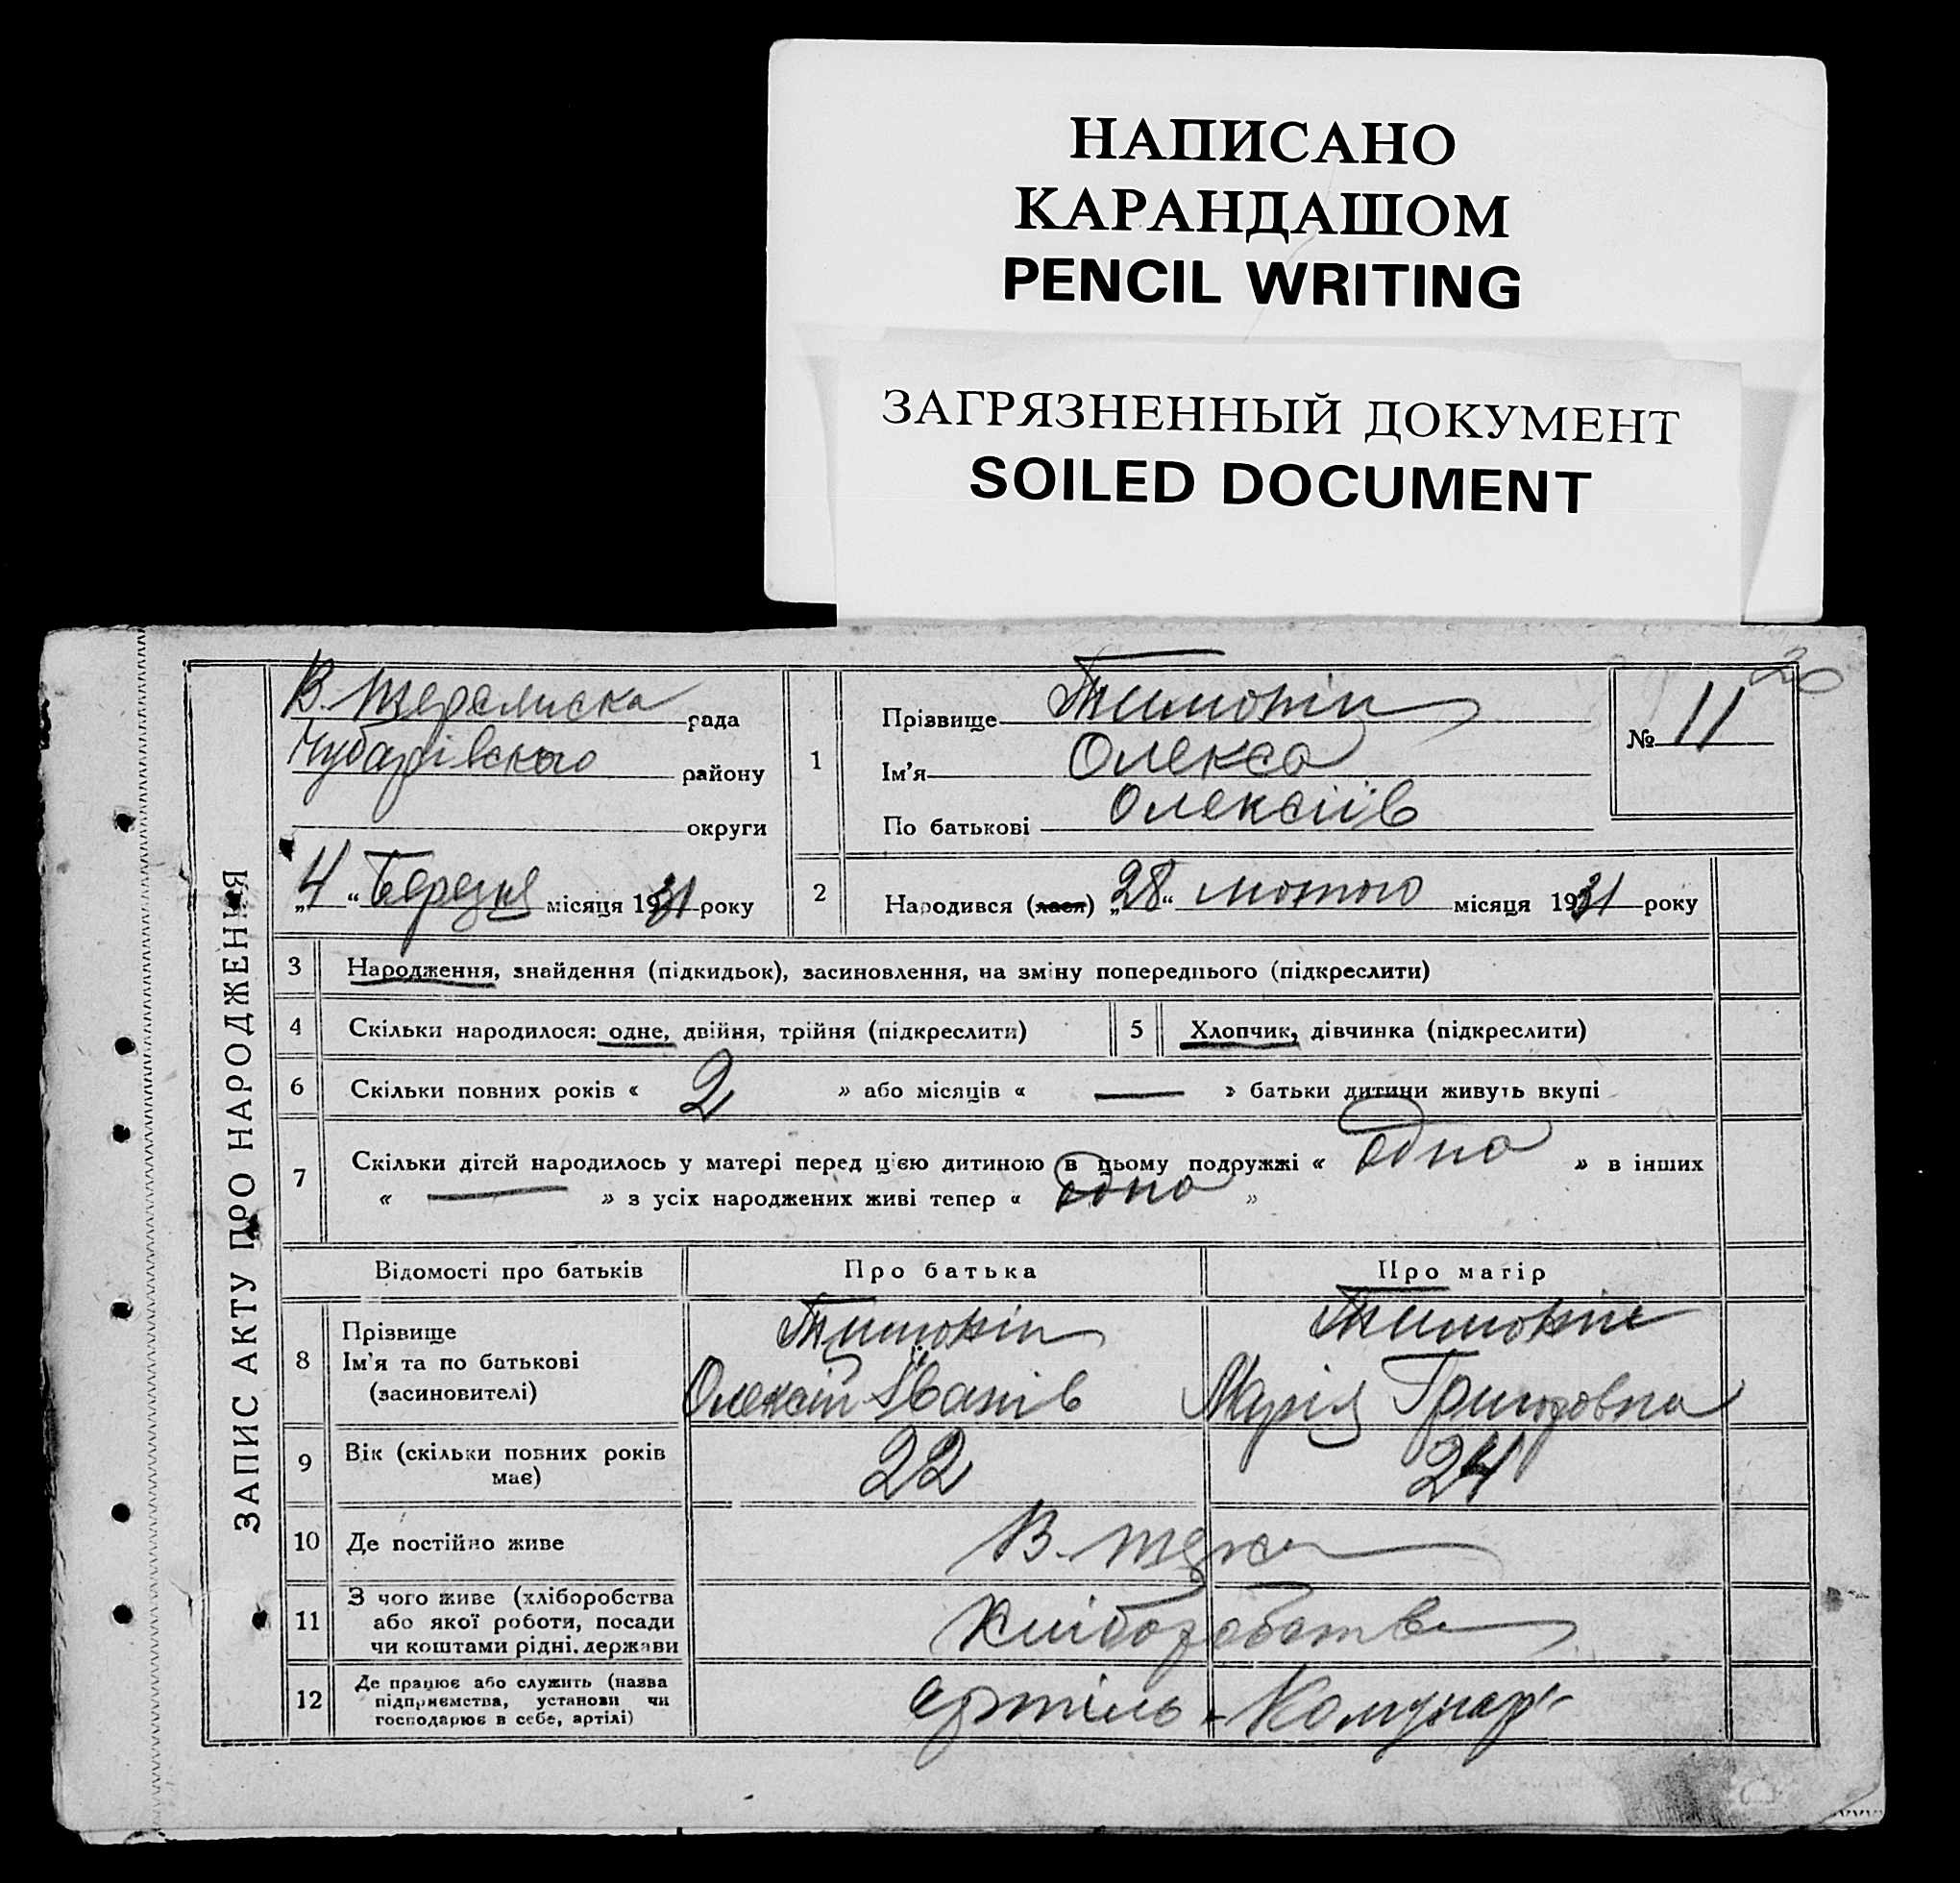 НАПИСАНО
КАРАНДАШОМ
PENCIL WRITING
ЗАГРЯЗНЕННЫЙ ДОКУМЕНТ
SOILED DOCUMENT
20
ЗАПИС АКТУ ПРО НАРОДЖЕННЯ
В. рада
Чубарівського району
округи
„4“ Березня місяця 1931 року
1
Прізвище Тимохін
Ім'я Олекса
По батькові Олексіїв
№ 11
2 Народився (лася) „28“ лютого місяця 1931 року
3 Народження, знайдення (підкидьок), засиновлення, на зміну попереднього (підкреслити)
4 Скільки народилося: одне, двійня, трійня (підкреслити) 5 Хлопчик, дівчинка (підкреслити)
6 Скільки повних років « 2 » або місяців « — » батьки дитини живуть вкупі
7 Скільки дітей народилось у матері перед цією дитиною в цьому подружжі « одна » в інших
« — » з усіх народжених живі тепер « одна »
Відомості про батьків Про батька Про матір
8 Прізвище Тимохін Тимохіна
Ім'я та по батькові
(засиновителі) Олексій Іванів Марія Григоровна
9 Вік (скільки повних років
має) 22 24
10 Де постійно живе В.
11 З чого живе (хліборобства
або якої роботи, посади
чи коштами рідні, держави Хліборобство
12 Де працює або служить (назва
підприємства, установи чи
господарює в себе, артілі) артіль „Комунар“